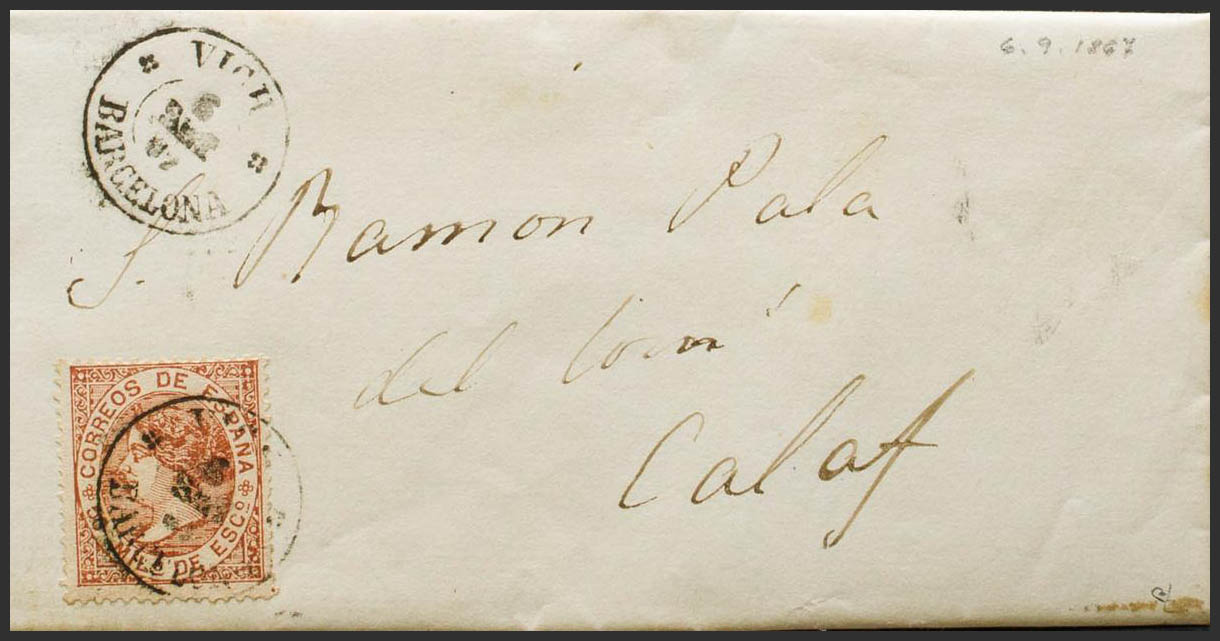 VICH
6
SET
67
BARCELONA
6.9.1867
S. Ramon Pala
del
Calaf
CORREOS DE ESPAÑA
MILS DE ESCO